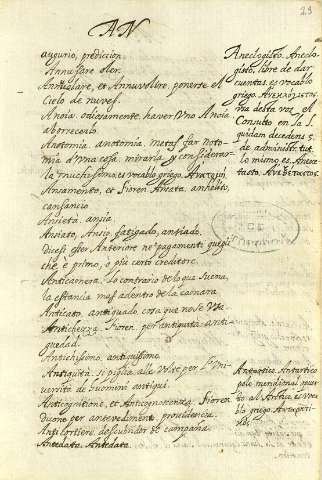 23
AN
augurio, predicion.
Annasare oler.
Annuvolare, et Annuvolire, ponerse el
Cielo de nuves.
Anoia. odiosamente, haver Uno A noia
Aborrecerlo.
Anotomia. anotomia, metaf. far noto-
mia d'una cosa. mirarla y considerar-
la mucho
es vocablo griego
Ansamento, et Fioren Ansata, anhelito,
cansancio
Ansietà. ansia.
Ansiato, Ansio, fatigado, ansiado.
Dicesi esser Anteriore ne pagamenti quegli
che è primo, o più certo creditore.
Anticamera, lo contrario de lo que suena,
la estancia mas adentro de la camara
Anticato, antiquado, cosa que no se Usa
Antichezza, Fioren. per antiquità, anti-
guedad.
Antichissimo, antiquissimo.
Antiquità, si piglia alle Volte per
versità di huomini antiqui.
Anticognitione, et Anticognoscenza, Fioren
Duone per antevedimento, providencia.
Anticorriere, descubridor de campaña
Antedato. Antedata.
Aneclogisto. Aneclo-
gisto, libre de dar
cuentas, es vocablo
griego. Ανεκλόγιστος.
Usa desta voz el
Consulto en la l.
quidam decedens §.
de administ. tut.
lo mismo es Anex-
tasto, Ανεξέταστος.
Antartico, Antartico
polo meridional, opues-
to al Artico, es voca-
blo griego